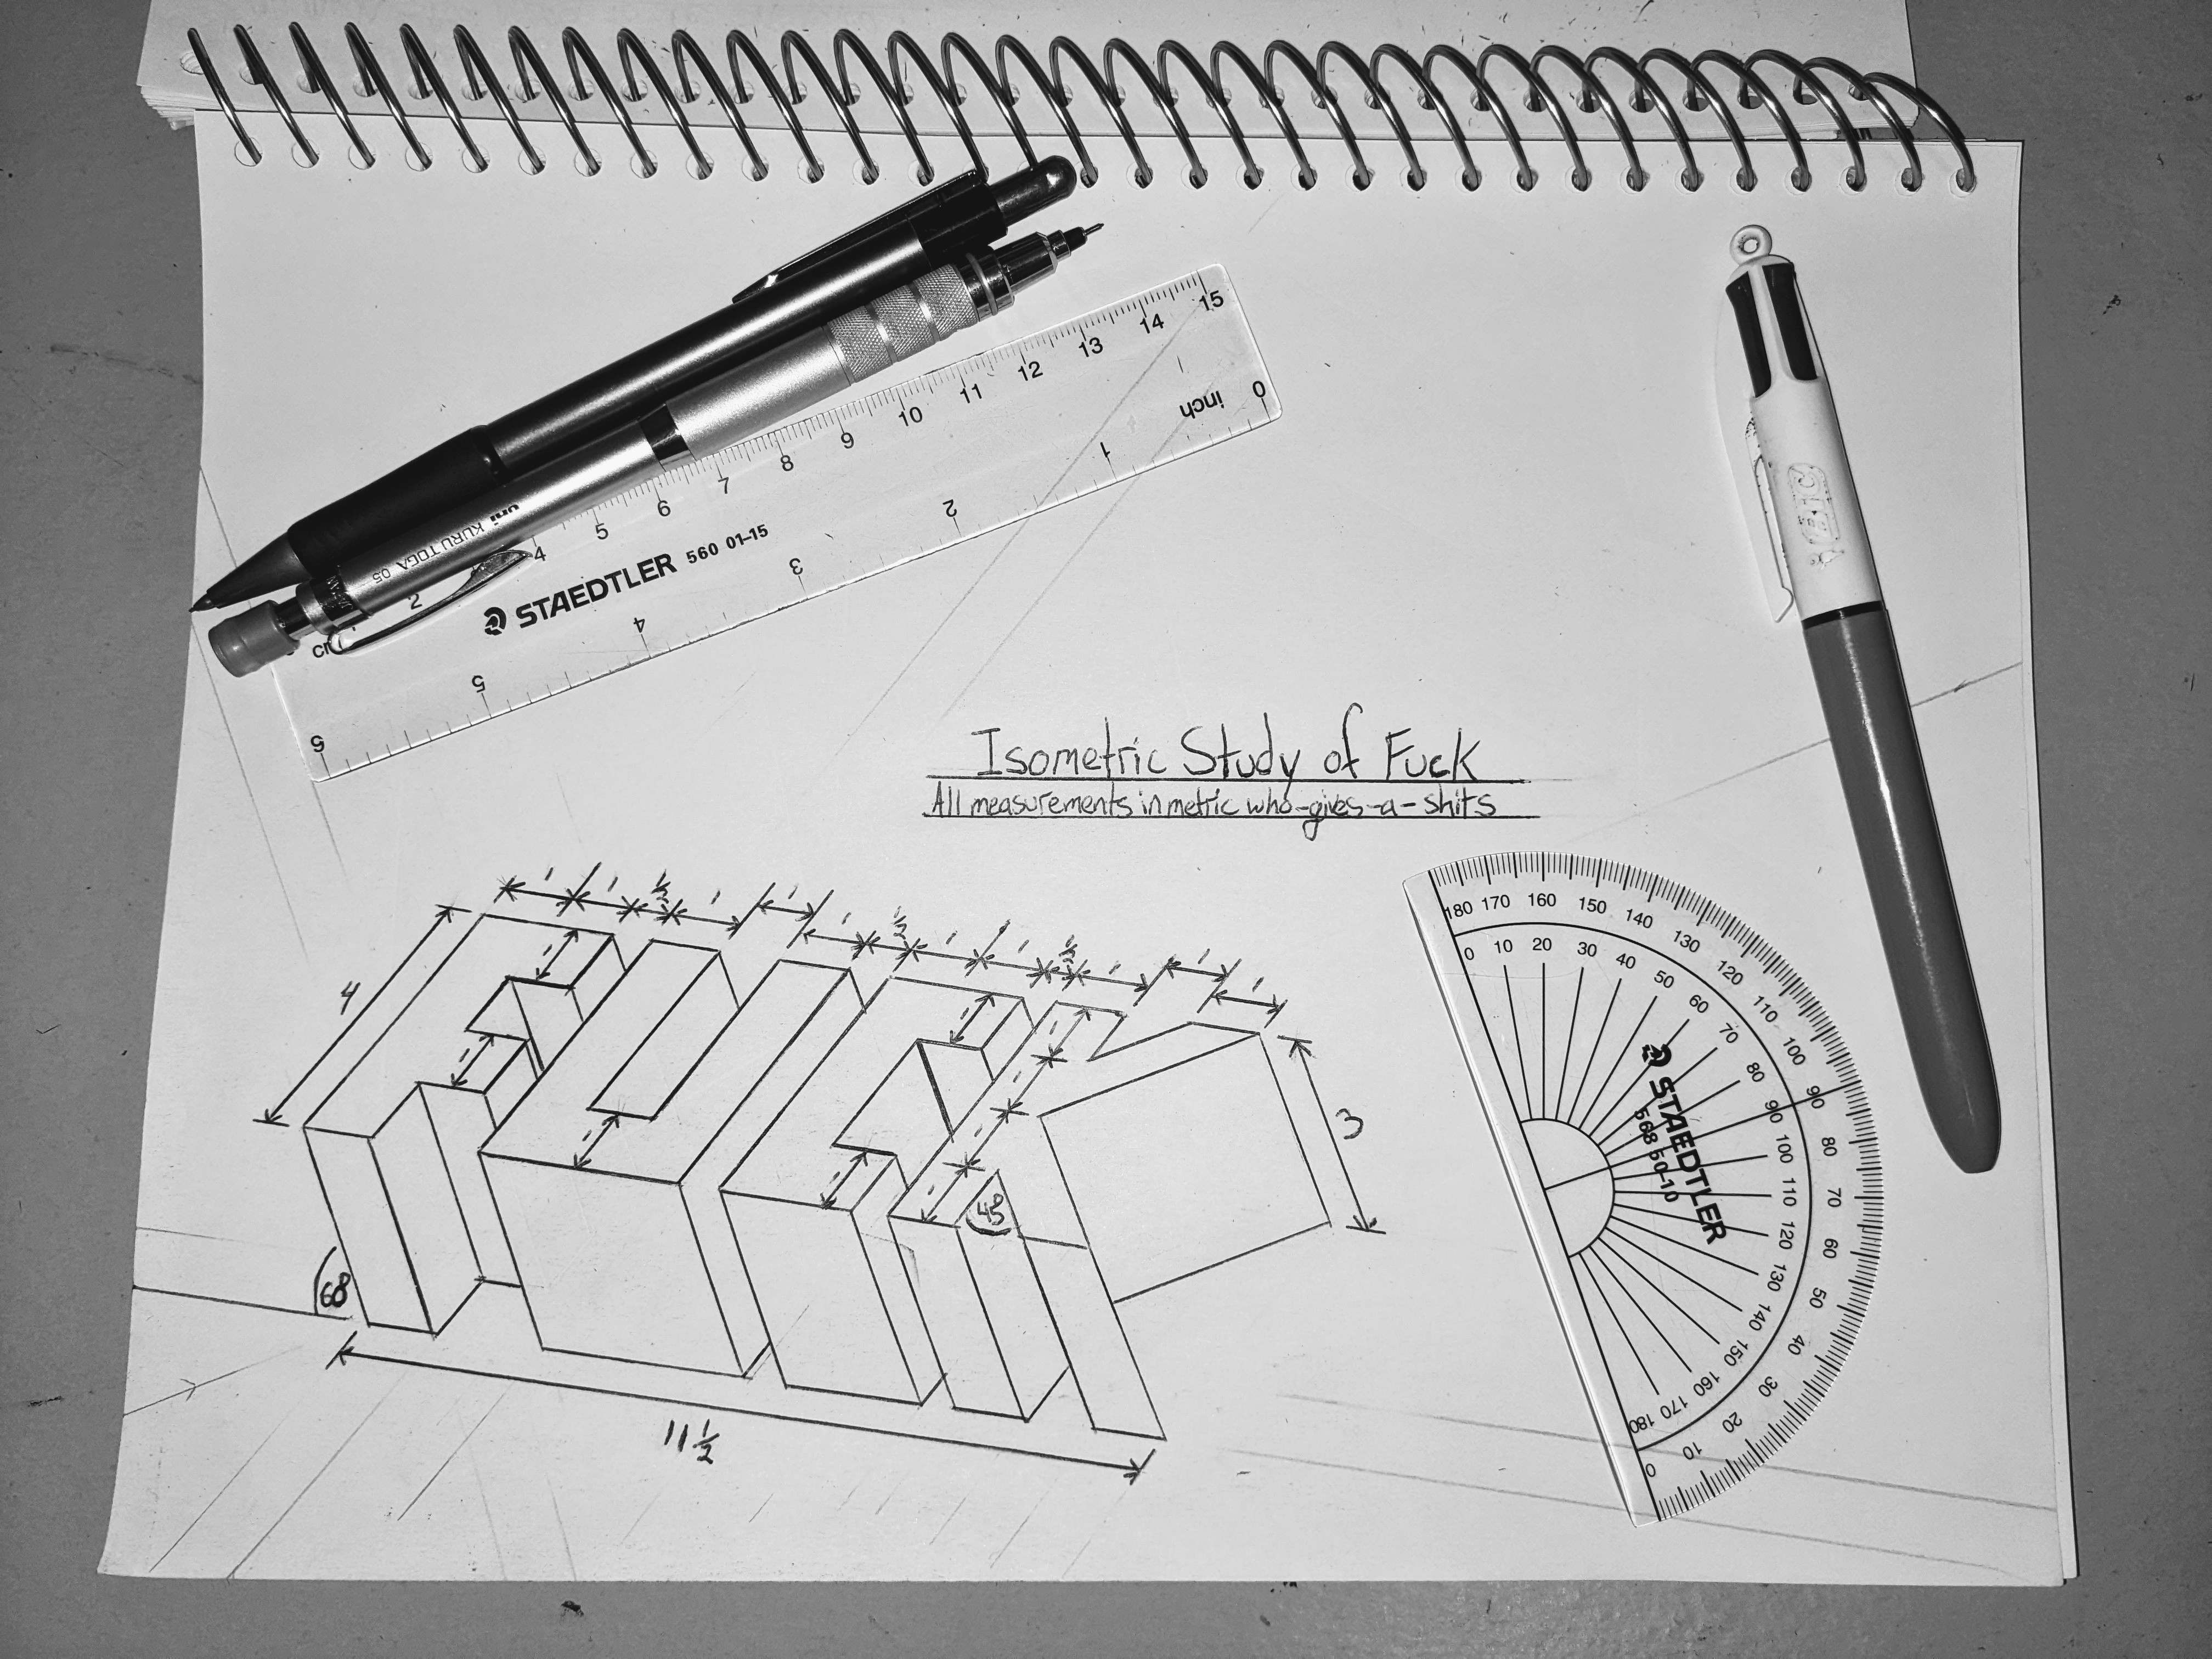 uni KURU TOGA 05
2 4 5 6 7 8 9 10 11 12 13 14 15
STAEDTLER 560 01-15
inch
0 1 2 3 4 5 6
BIC
Isometric Study of Fuck
All measurements in metric who-gives-a-shits
1 1 ½ 1 1 1 ½ 1 1 ½ 1 1 1
4
1 1 1 1 1 1 1 1 1
3
45
68
11 ½
180 170 160 150 140 130 120 110 100 90 80 70 60 50 40 30 20 10 0
0 10 20 30 40 50 60 70 80 90 100 110 120 130 140 150 160 170 180
STAEDTLER
568 50-10